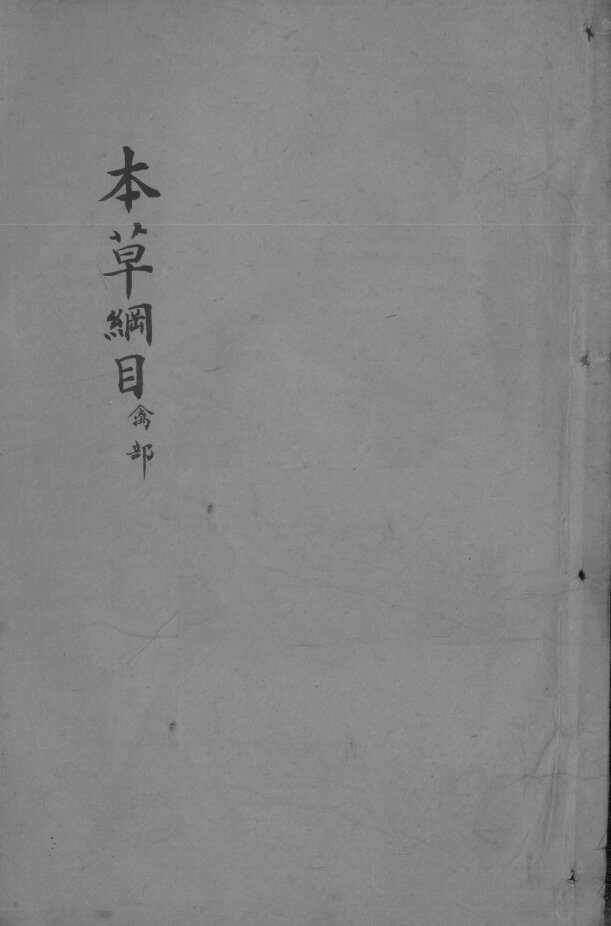 本草綱目禽部